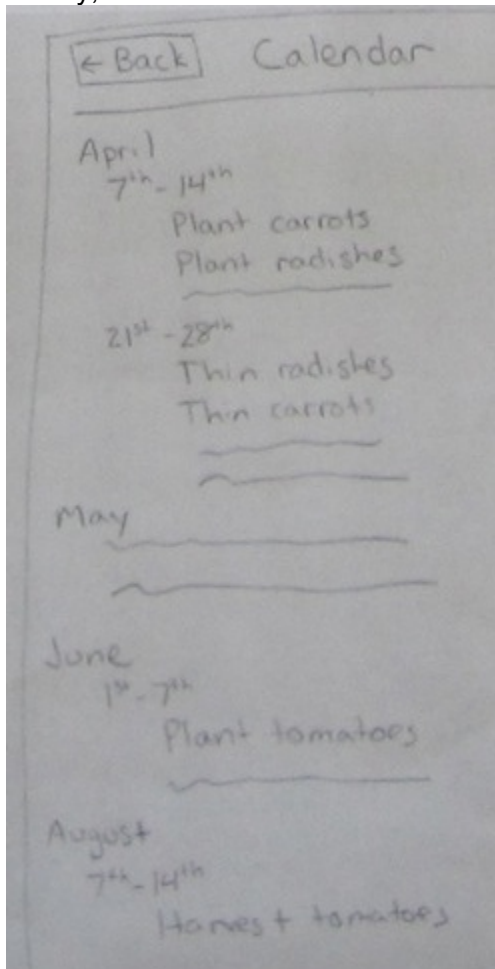 ← Back Calendar
April
7th - 14th
Plant carrots
Plant radishes
21st - 28th
Thin radishes
Thin carrots
May
June
1st - 7th
Plant tomatoes
August
7th - 14th
Harvest tomatoes